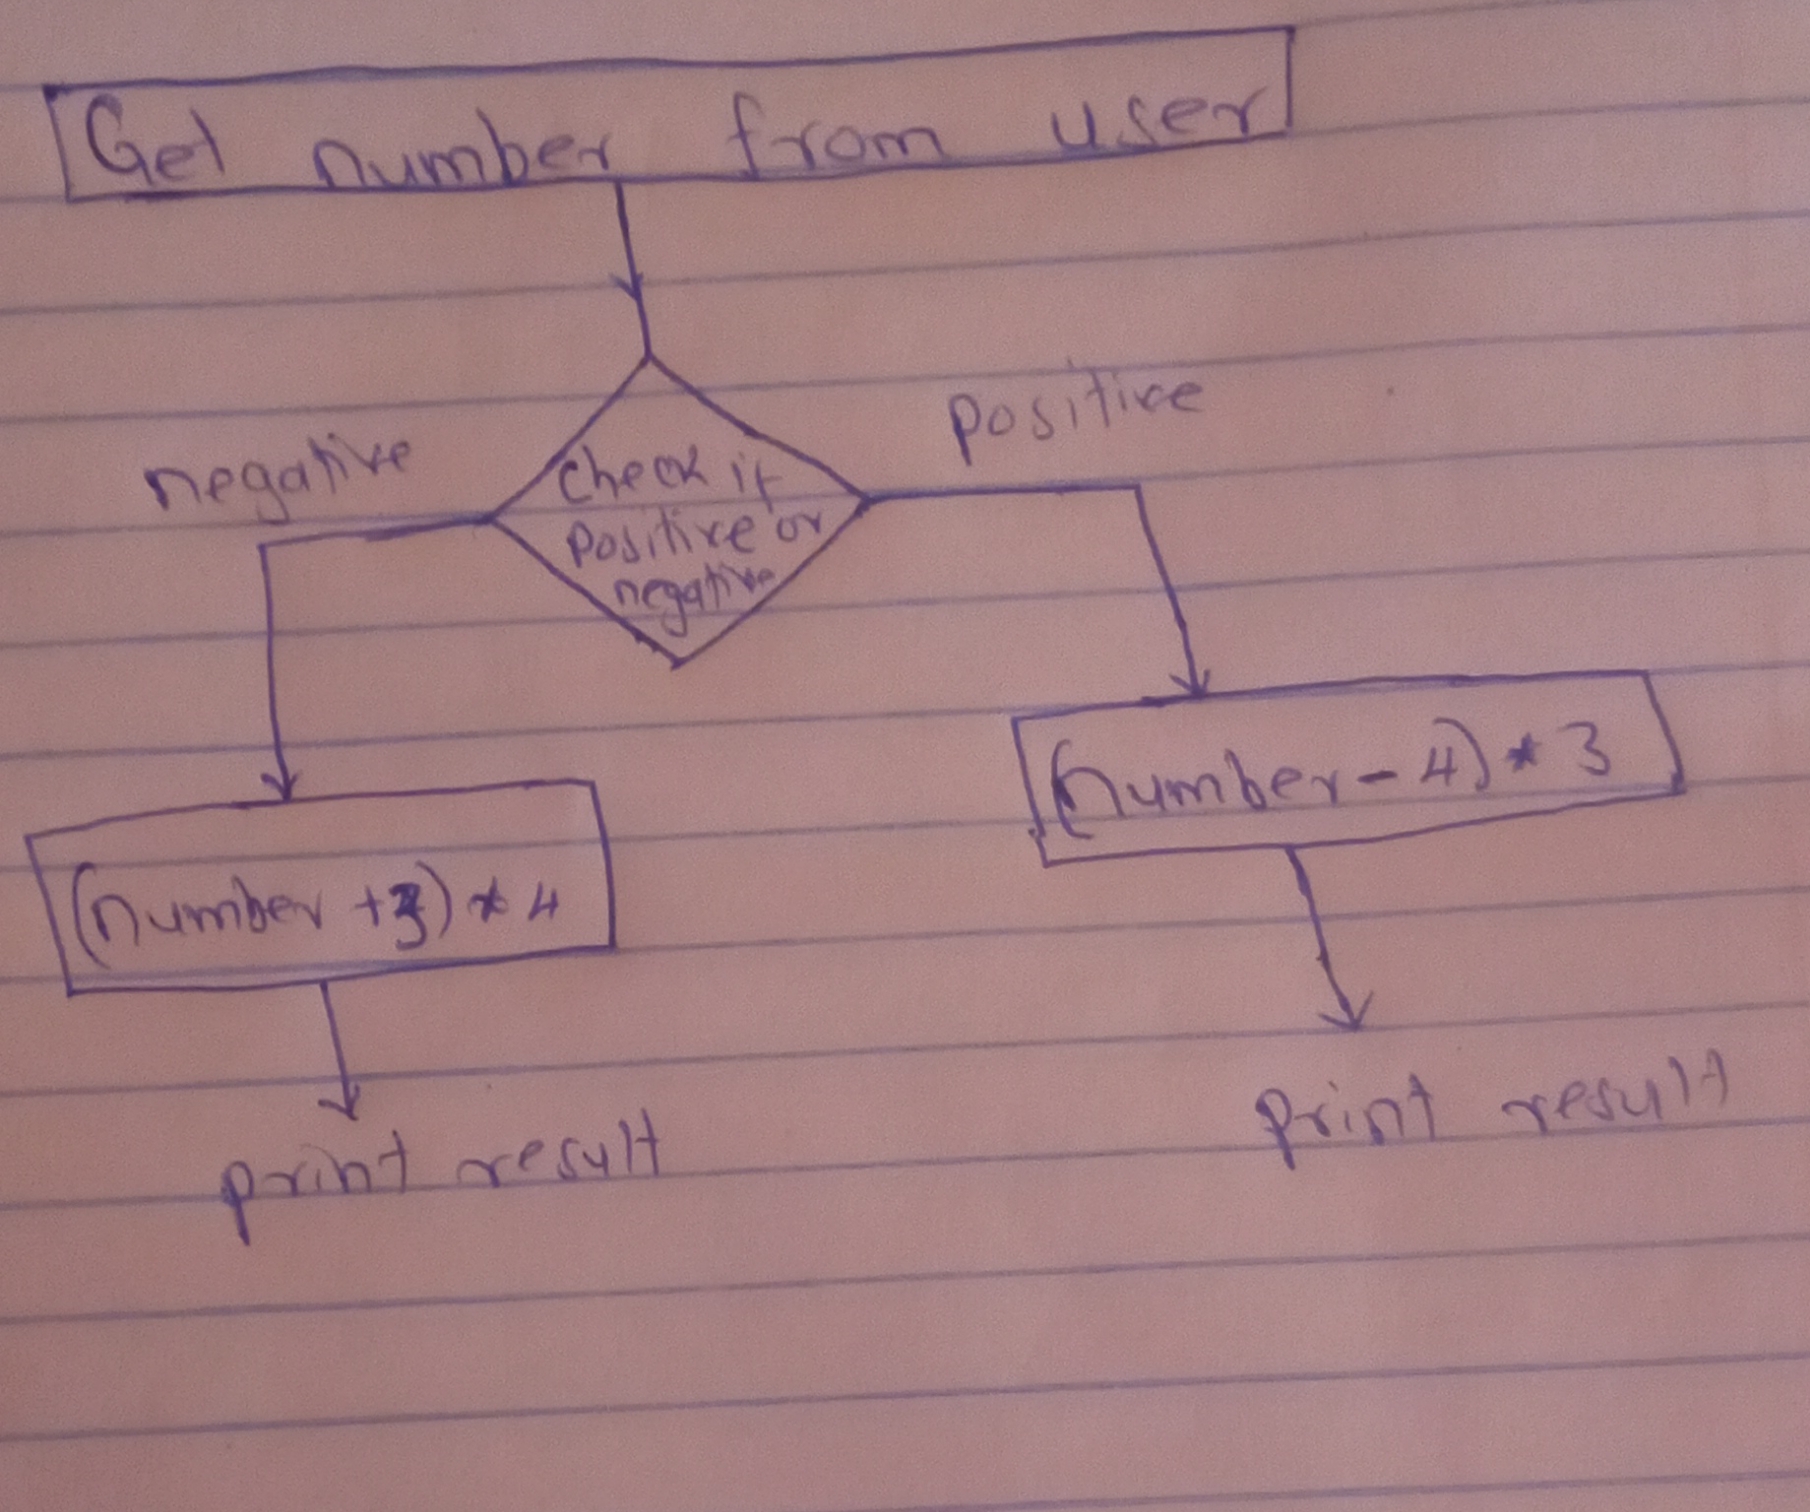 Get number from user
positive
negative
check if
positive or
negative
(number - 4) * 3
(number +3) * 4
print result
print result